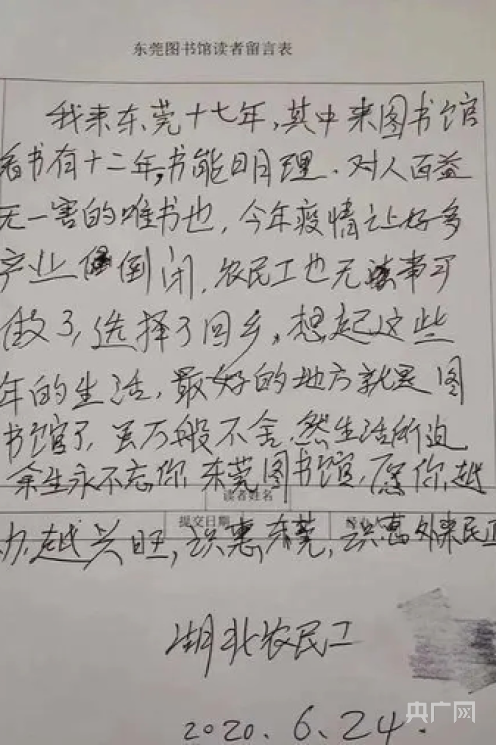 东莞图书馆读者留言表
我来东莞十七年,其中来图书馆
看书有十二年,书能明理、对人百益
无一害的唯书也,今年疫情让好多
产业倒闭,农民工也无事可
做了,选择了回乡,想起这些
年的生活,最好的地方就是图
书馆了,万般不舍,然生活所迫
余生永不忘你,东莞图书馆,愿你越
读者姓名
办越兴旺,识惠东莞,识惠外来民工
提交日期
湖北农民工
2020.6.24.
央广网